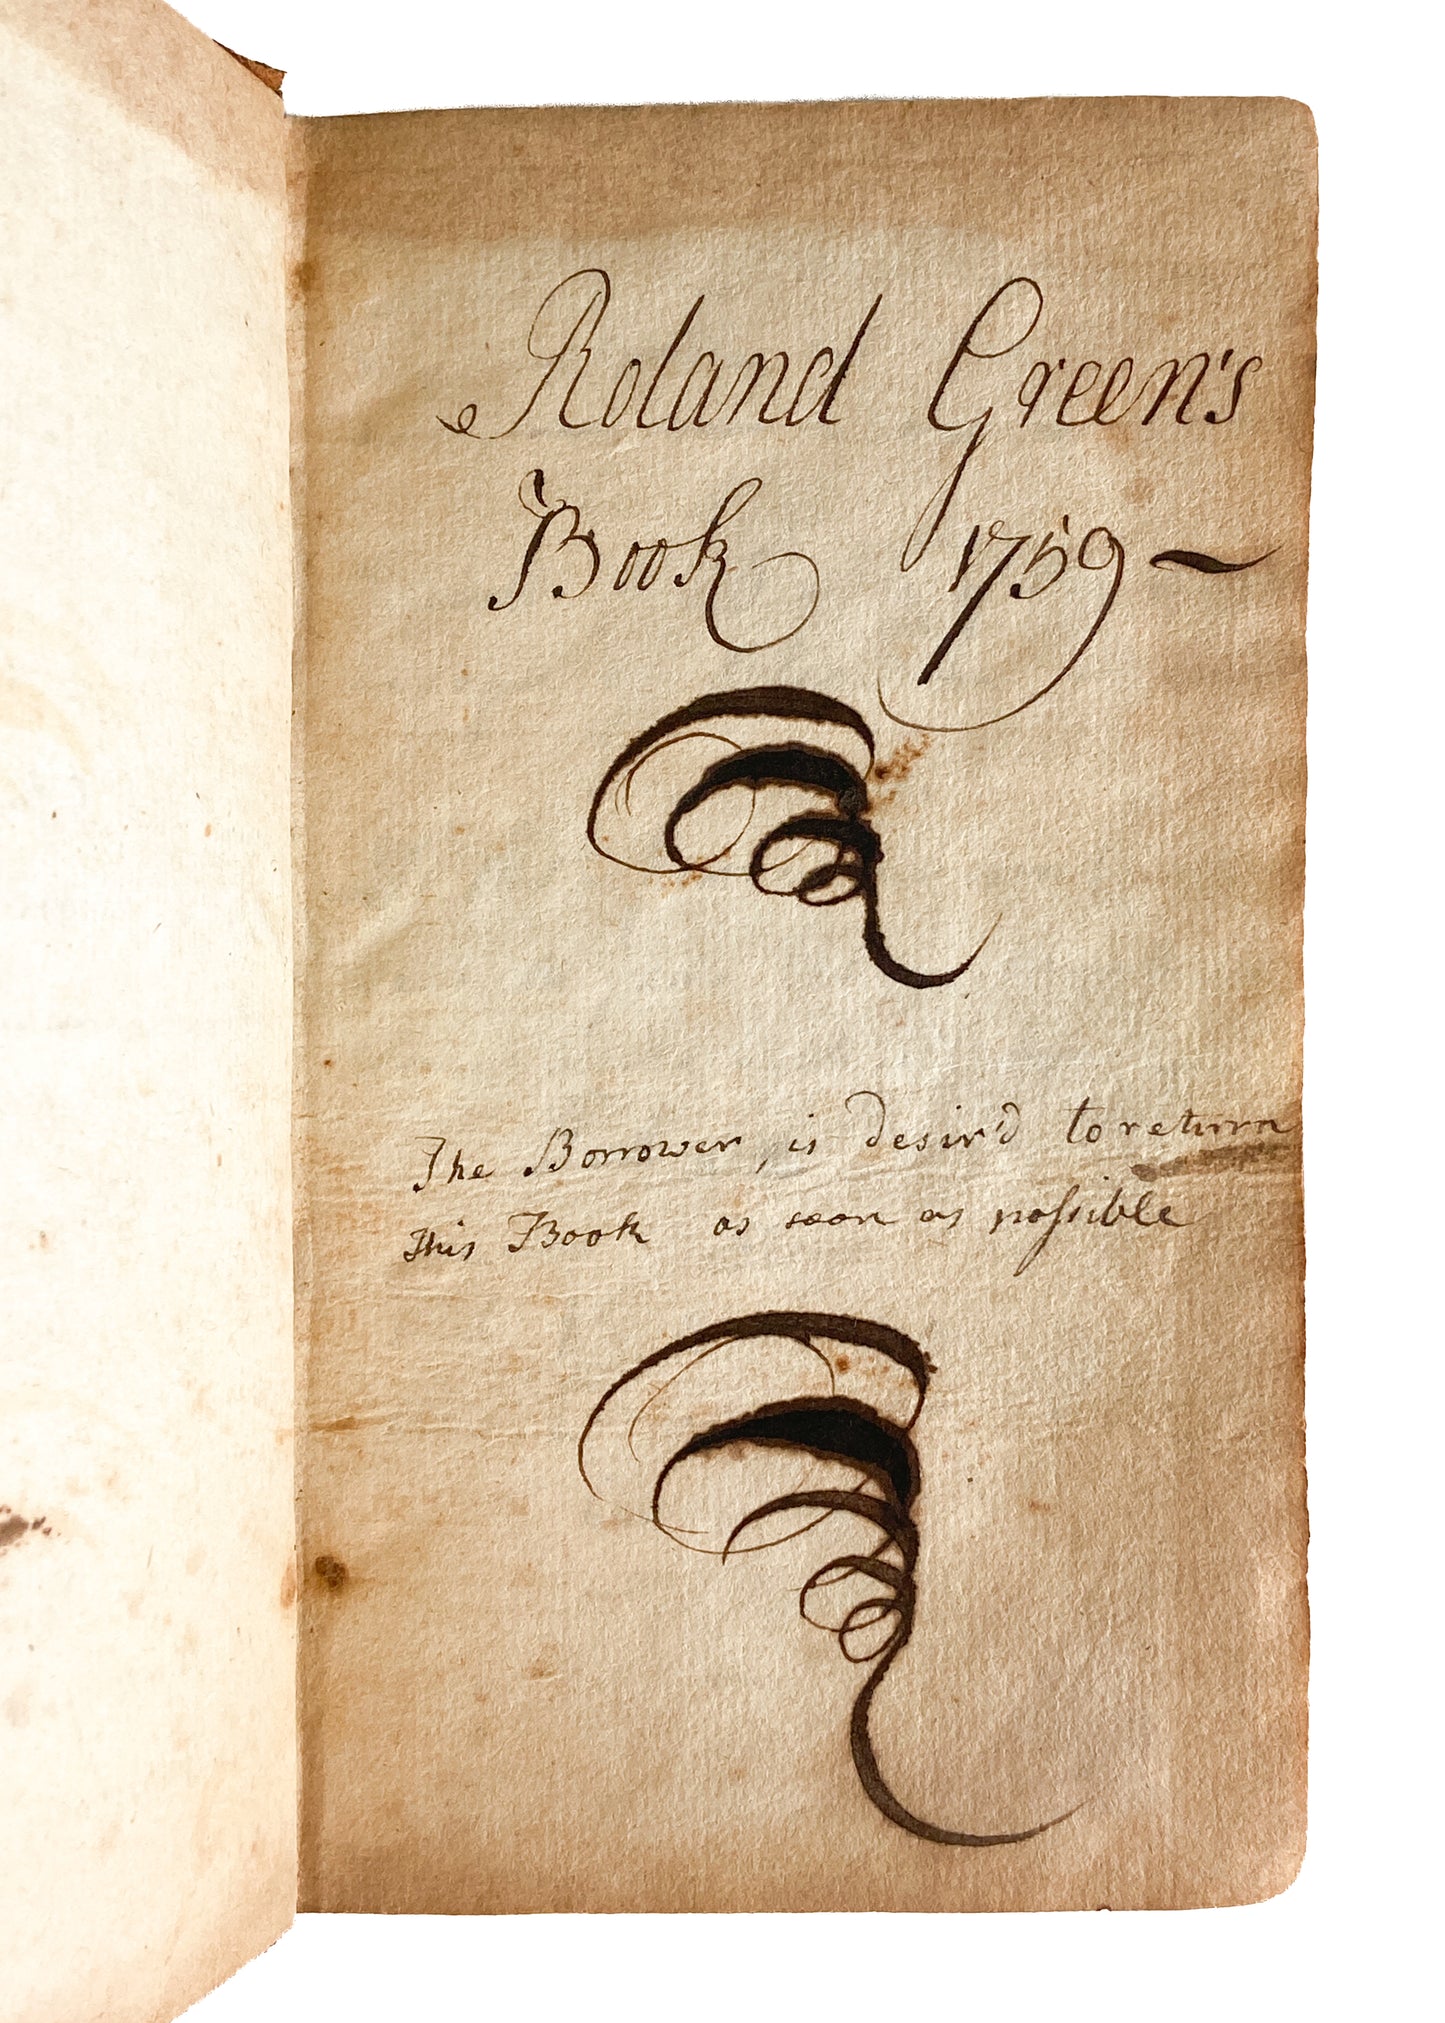 Roland Green's
Book 1759 –
The Borrower, is desir'd to return
this Book as soon as poſsible